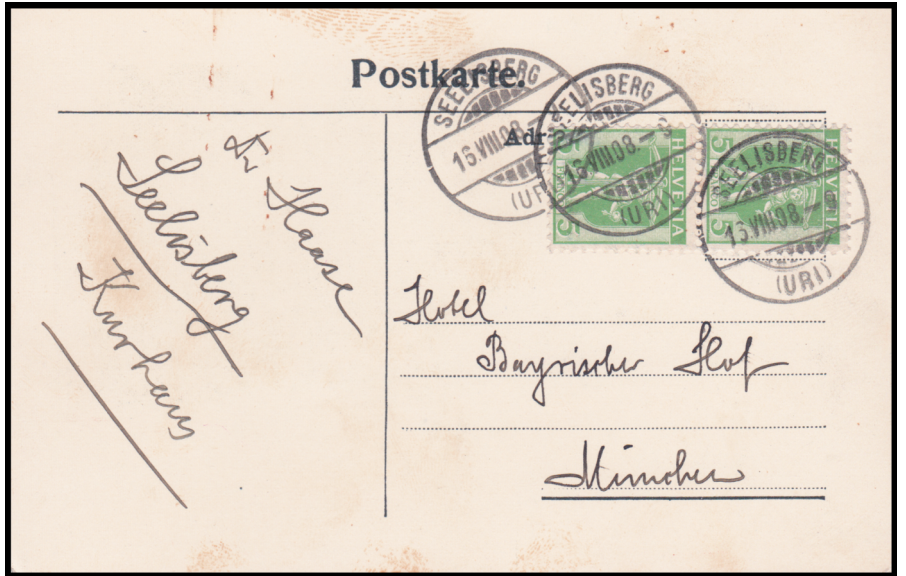 Postkarte.
SEELISBERG
16.VIII.08.–
(URI)
SEELISBERG
16.VIII.08.–
(URI)
SEELISBERG
16.VIII.08.–
(URI)
HELVETIA
5 5
HELVETIA
5 5
Adr
Haase
Seelisberg
Kurhaus
Hotel
Bayrischer Hof
München